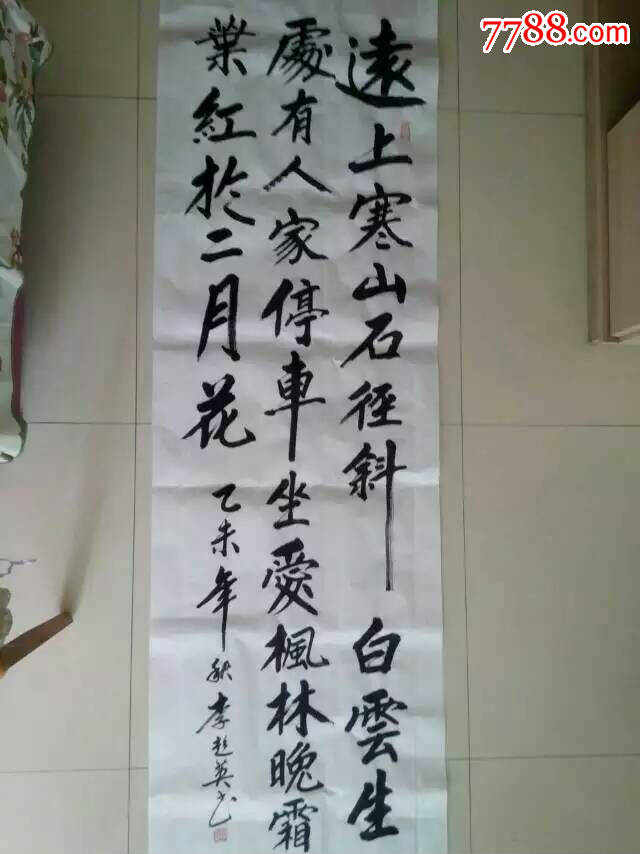 7788.com
遠上寒山石径斜白雲生
處有人家停車坐愛楓林晚霜
葉紅於二月花
乙未年秋李超英书